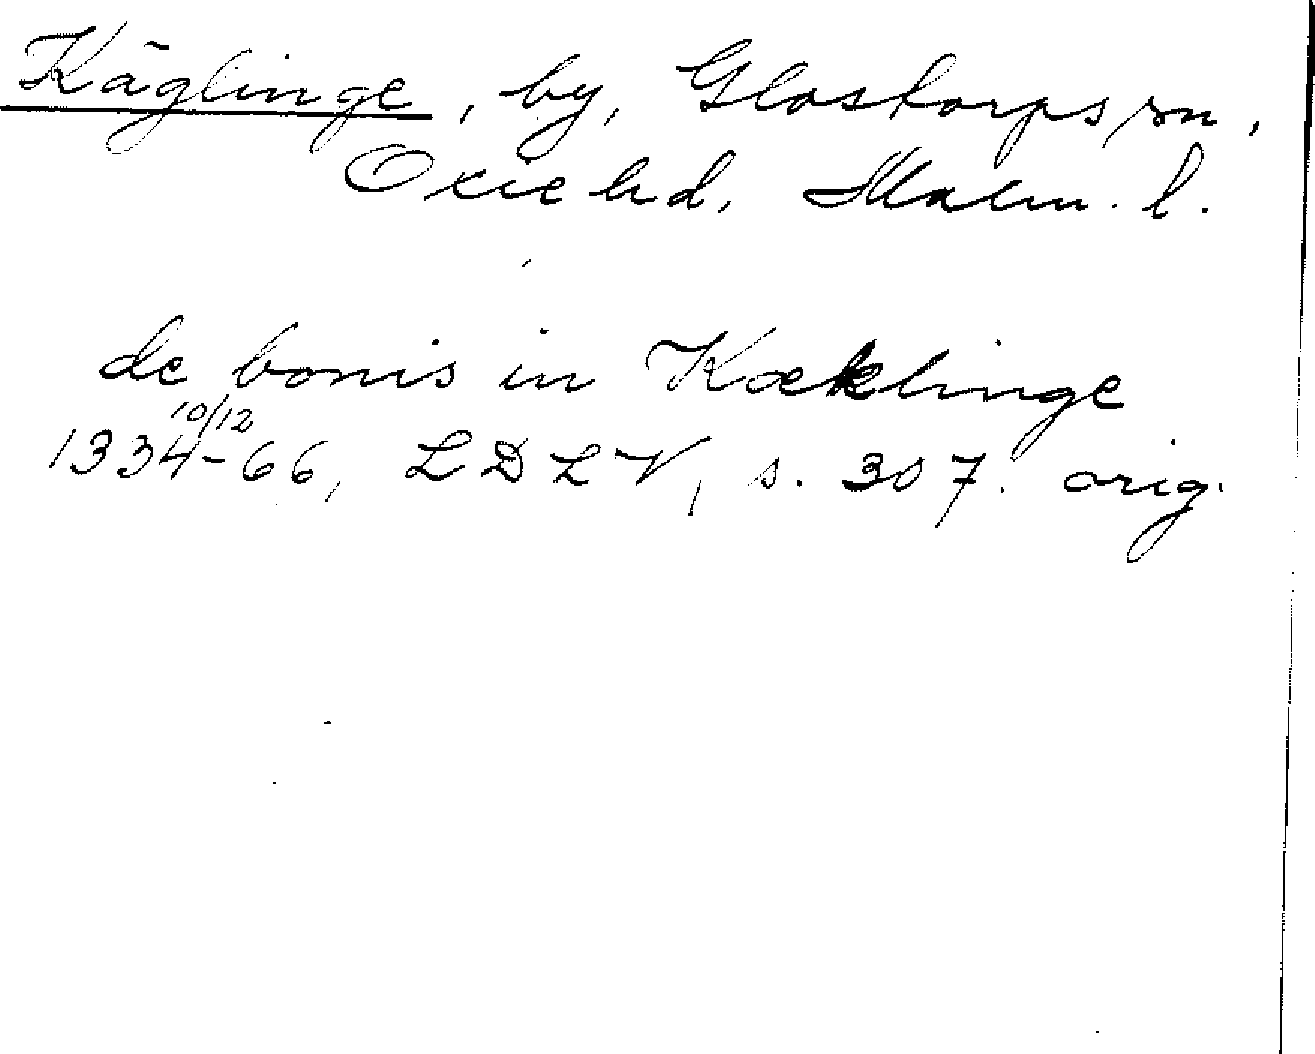 Käglinge, by, Glostorps sn,
Oxie hd, Malm. l.
de bonis in Kæklinge
10/12
1334-66, LDLV, s. 307. orig.